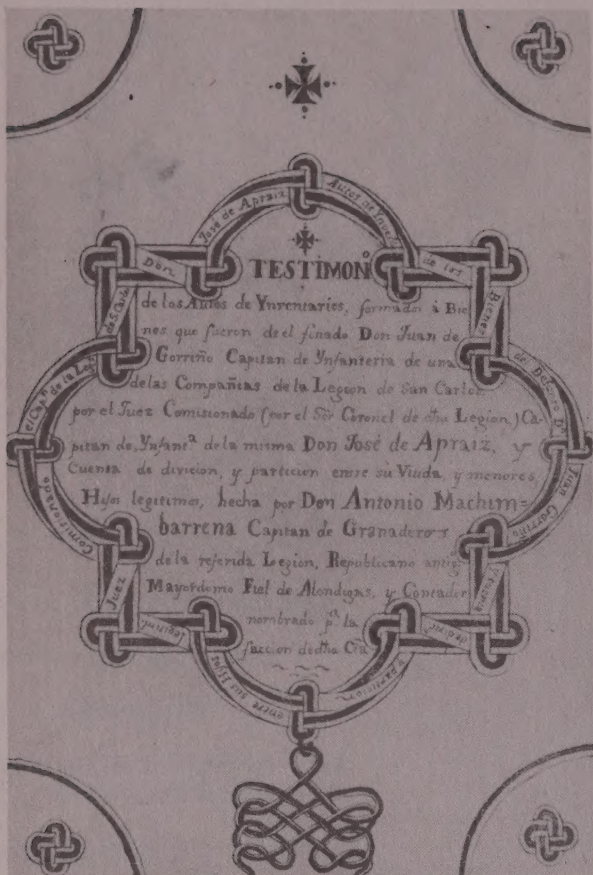 TESTIMONº
de los Autos de Ynventarios, formados á Bie
nes que fueron de el finado Don Juan de
Gorriño Capitan de Ynfanteria de una
de las Compañias de la Legion de San Carlos
por el Juez Comisionado (por el Sór Coronel de dha Legion) Ca-
pitan de Ynfantª de la misma Don José de Apraiz, y
Cuenta de divicion, y particion entre su Viuda, y menores
Hijos legitimos, hecha por Don Antonio Machim=
barrena Capitan de Granaderos
de la referida Legion, Republicano antigº
Mayordomo Fiel de Alondigas, y Contador
nombrado pª la
faccion de dha Cta
Autos de
de los
Bienes
del Dº
Juan
Gorriño
y cuenta
de divicⁿ
y particion
entre sus Hijos
legitimos
Juez
Comisionado
el Capⁿ de la Legⁿ
de S. Carlos
Don
José de Apraiz